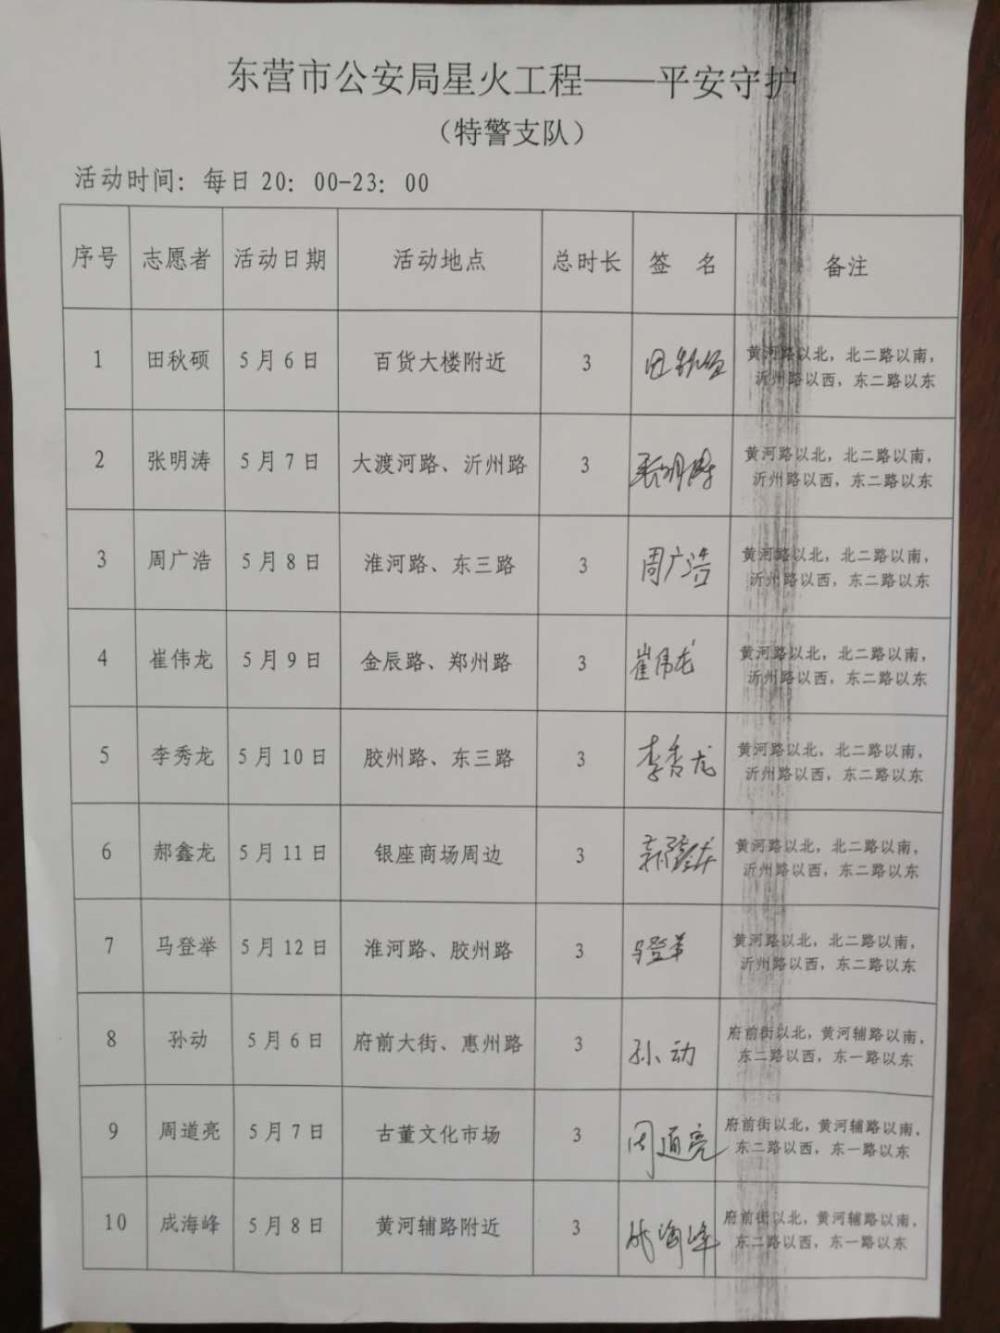 东营市公安局星火工程——平安守护
（特警支队）
活动时间：每日 20：00-23：00
序号 志愿者 活动日期 活动地点 总时长 签 名 备注
1 田秋硕 5月6日 百货大楼附近 3 田秋硕 黄河路以北，北二路以南，
沂州路以西，东二路以东
2 张明涛 5月7日 大渡河路、沂州路 3 张明涛 黄河路以北，北二路以南，
沂州路以西，东二路以东
3 周广浩 5月8日 淮河路、东三路 3 周广浩 黄河路以北，北二路以南，
沂州路以西，东二路以东
4 崔伟龙 5月9日 金辰路、郑州路 3 崔伟龙 黄河路以北，北二路以南，
沂州路以西，东二路以东
5 李秀龙 5月10日 胶州路、东三路 3 李秀龙 黄河路以北，北二路以南，
沂州路以西，东二路以东
6 郝鑫龙 5月11日 银座商场周边 3 郝鑫龙 黄河路以北，北二路以南，
沂州路以西，东二路以东
7 马登举 5月12日 淮河路、胶州路 3 马登举 黄河路以北，北二路以南，
沂州路以西，东二路以东
8 孙动 5月6日 府前大街、惠州路 3 孙动 府前街以北，黄河辅路以南，
东二路以西，东一路以东
9 周道亮 5月7日 古董文化市场 3 周道亮 府前街以北，黄河辅路以南，
东二路以西，东一路以东
10 成海峰 5月8日 黄河辅路附近 3 成海峰 府前街以北，黄河辅路以南，
东二路以西，东一路以东